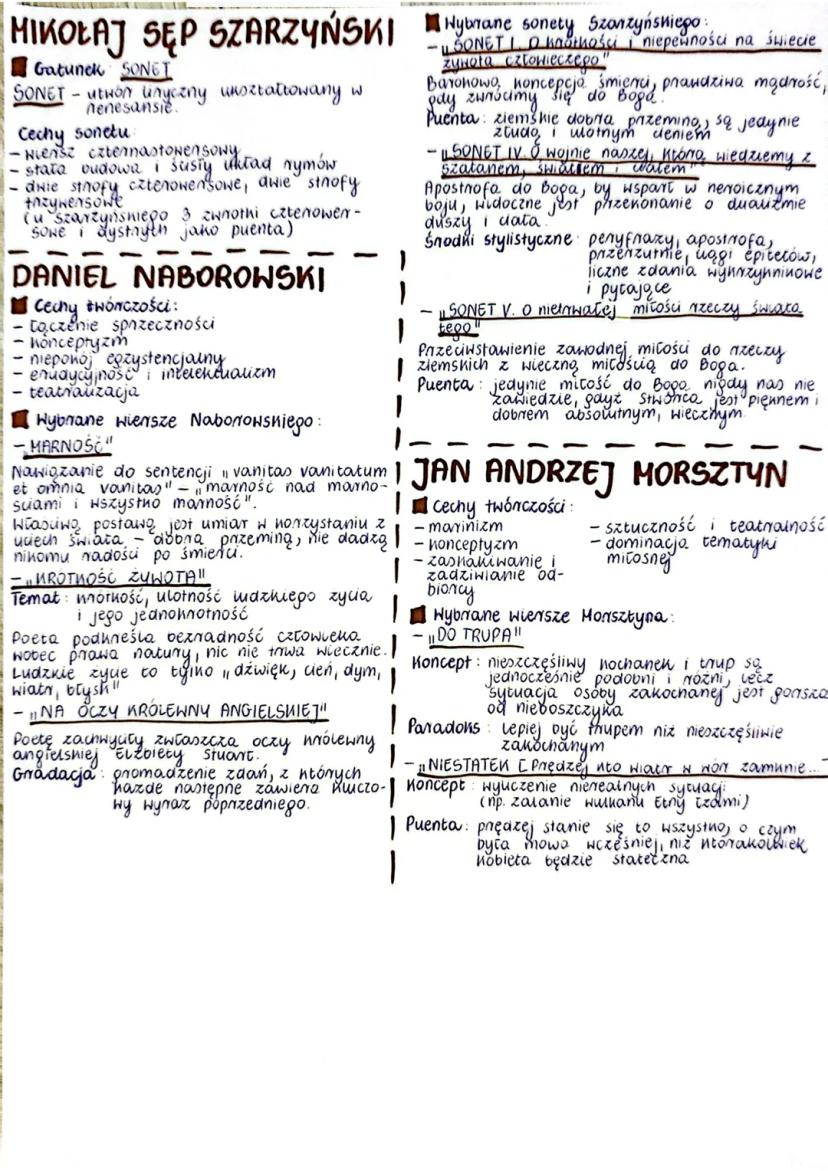 MIKOŁAJ SĘP SZARZYŃSKI
Gatunek: SONET
SONET - utwór liryczny ukształtowany w
renesansie.
Cechy sonetu:
- wiersz czternastowersowy
- stała budowa i ścisły układ rymów
- dwie strofy czterowersowe, dwie strofy
trzywersowe
(u Szarzyńskiego 3 zwrotki czterower-
sowe i dystych jako puenta)
DANIEL NABOROWSKI
Cechy twórczości:
- łączenie sprzeczności
- konceptyzm
- niepokój egzystencjalny
- erudycyjność i intelektualizm
- teatralizacja
Wybrane wiersze Naborowskiego:
- „MARNOŚĆ"
Nawiązanie do sentencji „vanitas vanitatum
et omnia vanitas" - „marność nad marno-
ściami i wszystko marność".
Właściwą postawą jest umiar w korzystaniu z
uciech świata - dobra przeminą, nie dadzą
nikomu radości po śmierci.
- „KRÓTKOŚĆ ŻYWOTA"
Temat: krótkość, ulotność ludzkiego życia
i jego jednokrotność
Poeta podkreśla bezradność człowieka
wobec prawa natury, nic nie trwa wiecznie.
Ludzkie życie to tylko „dźwięk, cień, dym,
wiatr, błysk"
- „NA OCZY KRÓLEWNY ANGIELSKIEJ"
Poetę zachwyciły zwłaszcza oczy królewny
angielskiej Elżbiety Stuart.
Gradacja: gromadzenie zdań, z których
każde następne zawiera kluczo-
wy wyraz poprzedniego.
Wybrane sonety Szarzyńskiego:
- „SONET I. O krótkości i niepewności na świecie
żywota człowieczego"
Barokowa koncepcja śmierci, prawdziwa mądrość,
gdy zwrócimy się do Boga.
Puenta: ziemskie dobra przeminą, są jedynie
złudą i ulotnym cieniem
- „SONET IV. O wojnie naszej, którą wiedziemy z
szatanem, światem i ciałem"
Apostrofa do Boga, by wsparł w heroicznym
boju, widoczne jest przekonanie o dualizmie
duszy i ciała.
Środki stylistyczne: peryfrazy, apostrofa,
przerzutnie, ciągi epitetów,
liczne zdania wykrzyknikowe
i pytające
- „SONET V. O nietrwałej miłości rzeczy świata
tego"
Przeciwstawienie zawodnej miłości do rzeczy
ziemskich z wieczną miłością do Boga.
Puenta: jedynie miłość do Boga nigdy nas nie
zawiedzie, gdyż stwórca jest pięknem i
dobrem absolutnym, wiecznym.
JAN ANDRZEJ MORSZTYN
Cechy twórczości:
- marinizm
- konceptyzm
- zaskakiwanie i
zadziwianie od-
biorcy
- sztuczność i teatralność
- dominacja tematyki
miłosnej
Wybrane wiersze Morsztyna:
- „DO TRUPA"
Koncept: nieszczęśliwy kochanek i trup są
jednocześnie podobni i różni, lecz
sytuacja osoby zakochanej jest gorsza
od nieboszczyka
Paradoks: lepiej być trupem niż nieszczęśliwie
zakochanym
- „NIESTATEK [Prędzej kto wiatr w wór zamknie..."
Koncept: wyliczenie nierealnych sytuacji
(np. zalanie wulkanu Etny łzami)
Puenta: prędzej stanie się to wszystko, o czym
była mowa wcześniej, niż którakolwiek
kobieta będzie stateczna